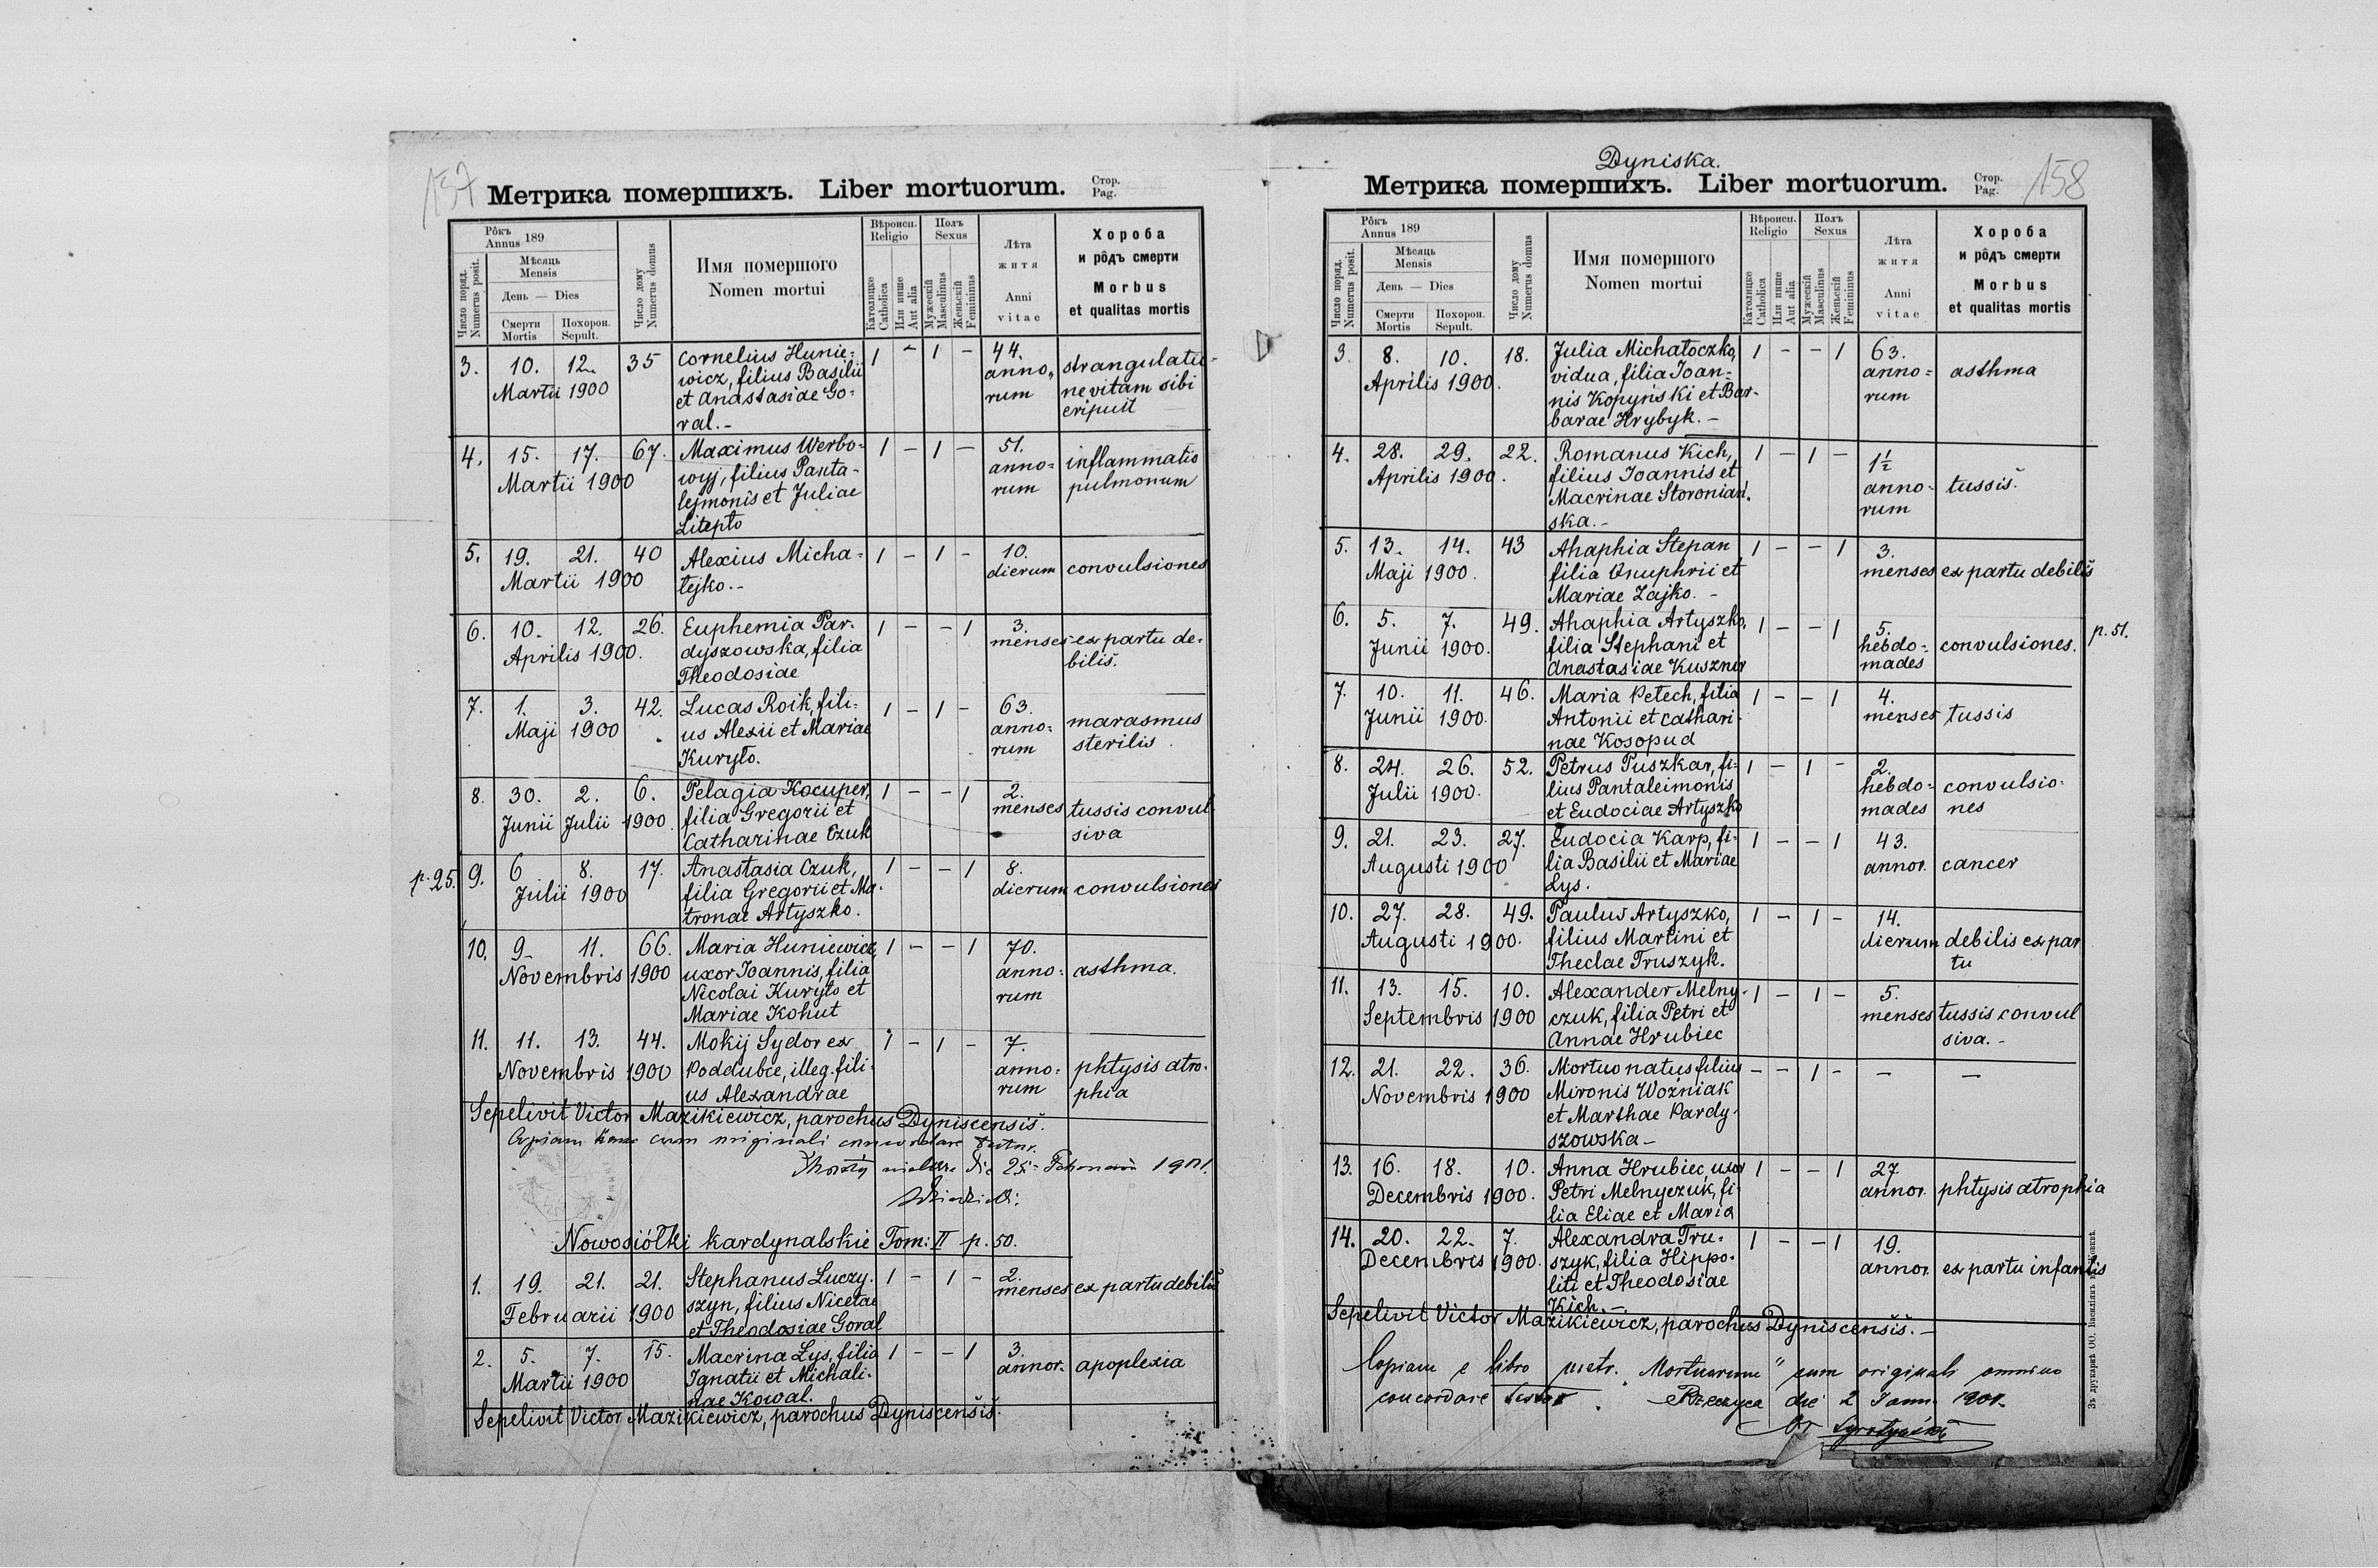 157
Метрика помершихъ. Liber mortuorum. Стор. Pag.
Число поряд. Numerus posit.
Рôкъ Annus 189
Мѣсяць Mensis
День — Dies
Смерти Mortis
Похорон. Sepult.
Число дому Numerus domus
Имя помершого Nomen mortui
Вѣроисп. Religio
Католицке Catholica
Или инше Aut alia
Полъ Sexus
Мужескій Masculinus
Женьскій Femininus
Лѣта житя Anni vitae
Хороба и рôдъ смерти Morbus et qualitas mortis
3. 10. 12. 35 Cornelius Hunie- 1 - 1 - 44. strangulatio-
Martii 1900 wicz, filius Basilii anno- ne vitam sibi
et Anastasiae Go- rum eripuit
ral.-
4. 15. 17. 67. Maximus Werbo- 1 - 1 - 51. inflammatio
Martii 1900 wyj, filius Panta- anno- pulmonum
lejmonis et Juliae rum
Litepto
5. 19. 21. 40 Alexius Micha- 1 - 1 - 10. convulsiones
Martii 1900 łejko.- dierum
6. 10. 12. 26. Euphemia Par- 1 - - 1 3. ex partu de-
Aprilis 1900. dyszowska, filia menses bilis.
Theodosiae
7. 1. 3. 42. Lucas Roik, fili- 1 - 1 - 63. marasmus
Maji 1900 us Alexii et Mariae anno- sterilis.
Kuryło. rum
8. 30. 2. 6. Pelagia Kocuper, 1 - - 1 2. tussis convul
Junii Julii 1900. filia Gregorii et menses siva
Catharinae Czuk
p. 25. 9. 6 8. 17. Anastasia Czuk, 1 - - 1 8. convulsiones
Julii 1900 filia Gregorii et Ma- dierum
tronae Artyszko.
10. 9. 11. 66. Maria Huniewicz, 1 - - 1 70. asthma.
Novembris 1900 uxor Joannis, filia anno-
Nicolai Kuryło et rum
Mariae Kohut
11. 11. 13. 44. Mokij Sydor ex 1 - 1 - 7. phtysis atro-
Novembris 1900 Poddubce, illeg. fili- anno- phia
us Alexandrae rum
Sepelivit Victor Mazikiewicz, parochus Dyniscensis.
Copiam hanc cum originali concordare testor.
die 25 1901.
Nowosiółki kardynalskie Tom: II p. 50.
1. 19. 21. 21. Stephanus Łuczy- 1 - 1 - 2. ex partu debilis
Februarii 1900 szyn, filius Nicetae menses
et Theodosiae Goral
2. 5. 7. 15. Macrina Łys, filia 1 - - 1 3. apoplexia
Martii 1900 Ignatii et Michali- annor.
nae Kowal.
Sepelivit Victor Mazikiewicz, parochus Dyniscensis.
Dyniska.
158
Метрика помершихъ. Liber mortuorum. Стор. Pag.
Число поряд. Numerus posit.
Рôкъ Annus 189
Мѣсяць Mensis
День — Dies
Смерти Mortis
Похорон. Sepult.
Число дому Numerus domus
Имя помершого Nomen mortui
Вѣроисп. Religio
Католицке Catholica
Или инше Aut alia
Полъ Sexus
Мужескій Masculinus
Женьскій Femininus
Лѣта житя Anni vitae
Хороба и рôдъ смерти Morbus et qualitas mortis
3. 8. 10. 18. Julia Michałoczko, 1 - - 1 63. asthma
Aprilis 1900. vidua, filia Joan- anno-
nis Kopyński et Bar- rum
barae Hrybyk.-
4. 28. 29. 22. Romanus Kich, 1 - 1 - 1½ tussis.
Aprilis 1900. filius Joannis et anno-
Macrinae Storoniań- rum
ska.-
5. 13. 14. 43 Ahaphia Stepan 1 - - 1 3. ex partu debilis
Maji 1900. filia Onuphrii et menses
Mariae Zajko.-
6. 5. 7. 49. Ahaphia Artyszko, 1 - - 1 5. convulsiones. p. 51.
Junii 1900. filia Stephani et hebdo-
Anastasiae Kusznir mades
7. 10. 11. 46. Maria Petech, filia 1 - - 1 4. tussis
Junii 1900. Antonii et Cathari- menses
nae Kosopud
8. 24. 26. 52. Petrus Puszkar, fi- 1 - 1 - 2. convulsio-
Julii 1900. lius Pantaleimonis hebdo- nes
et Eudociae Artyszko mades
9. 21. 23. 27. Eudocia Karp, fi- 1 - - 1 43. cancer
Augusti 1900 lia Basilii et Mariae annor.
Łys.
10. 27. 28. 49. Paulus Artyszko, 1 - 1 - 14. debilis ex par
Augusti 1900. filius Martini et dierum tu
Theclae Truszyk.
11. 13. 15. 10. Alexander Melny- 1 - 1 - 5. tussis convul
Septembris 1900 czuk, filia Petri et menses siva.-
Annae Hrubiec
12. 21. 22. 36. Mortuo natus filius - - 1 - - -
Novembris 1900 Mironis Woźniak
et Marthae Pardy-
szowska-
13. 16. 18. 10. Anna Hrubiec, uxor 1 - - 1 27. phtysis atrophia
Decembris 1900. Petri Melnyczuk, fi- annor.
lia Eliae et Maria
14. 20. 22. 7. Alexandra Tru- 1 - - 1 19. ex partu infantis
Decembris 1900. szyk, filia Hippo- annor.
liti et Theodosiae
Kich.-
Sepelivit Victor Mazikiewicz, parochus Dyniscensis.-
Copiam e libro metr. "Mortuorum" cum originali omnino
concordare testor. Rzeczyca die 2 Jann. 1901.
Зъ друкарнѣ ОО. Василіянъ въ Жовквѣ.